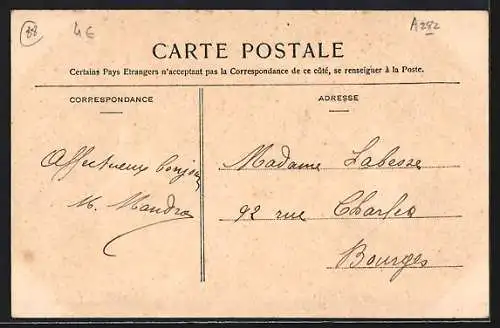 88
4€
A282
CARTE POSTALE
Certains Pays Etrangers n'acceptent pas la Correspondance de ce côté, se renseigner à la Poste.
CORRESPONDANCE
ADRESSE
Affectueux bonjour
M. Mandra
Madame Labesse
92 rue Charles
Bourges